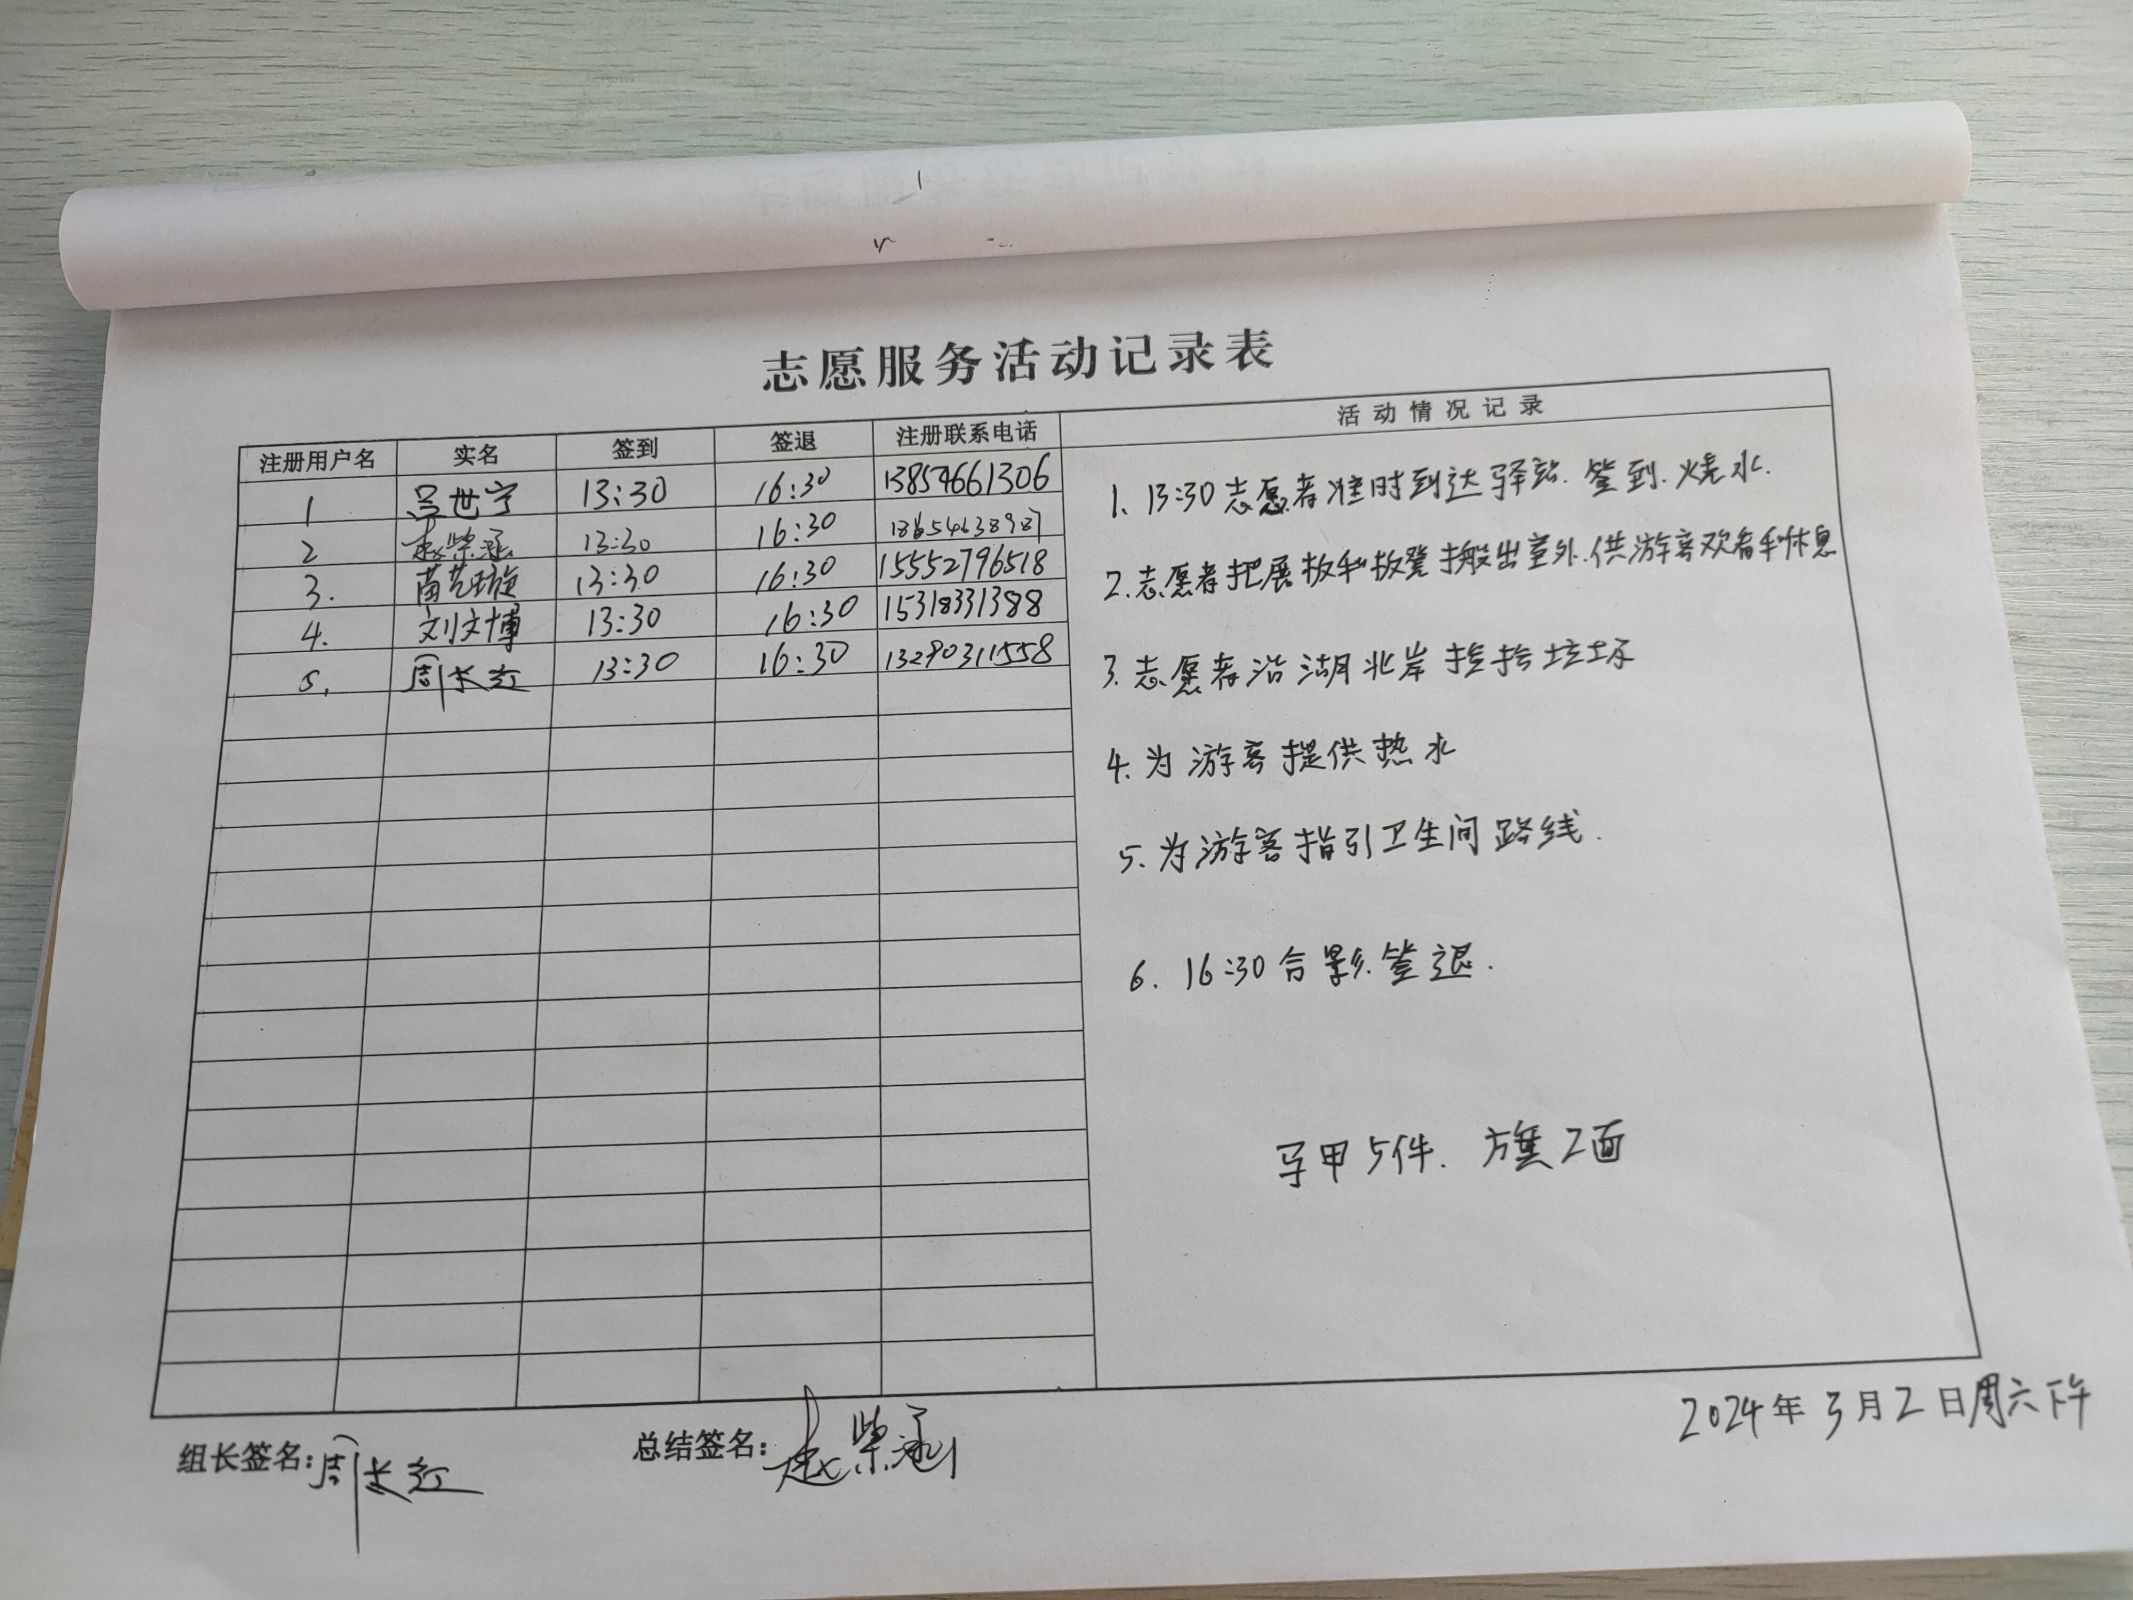 志愿服务活动记录表
注册用户名 实名 签到 签退 注册联系电话 活动情况记录
1 吕世宁 13:30 16:30 13854661306
2 赵紫涵 13:30 16:30 18654638987
3. 苗艺璇 13:30 16:30 15552796518
4. 刘文博 13:30 16:30 15318331388
5. 周长红 13:30 16:30 13290311558
1. 13:30志愿者准时到达驿站.签到.烧水.
2.志愿者把展板和板凳搬出室外.供游客观看和休息
3.志愿者沿湖北岸捡拾垃圾
4.为游客提供热水
5.为游客指引卫生间路线.
6. 16:30合影.签退.
马甲5件. 旗2面
2024年3月2日周六下午
组长签名:周长红 总结签名:赵紫涵